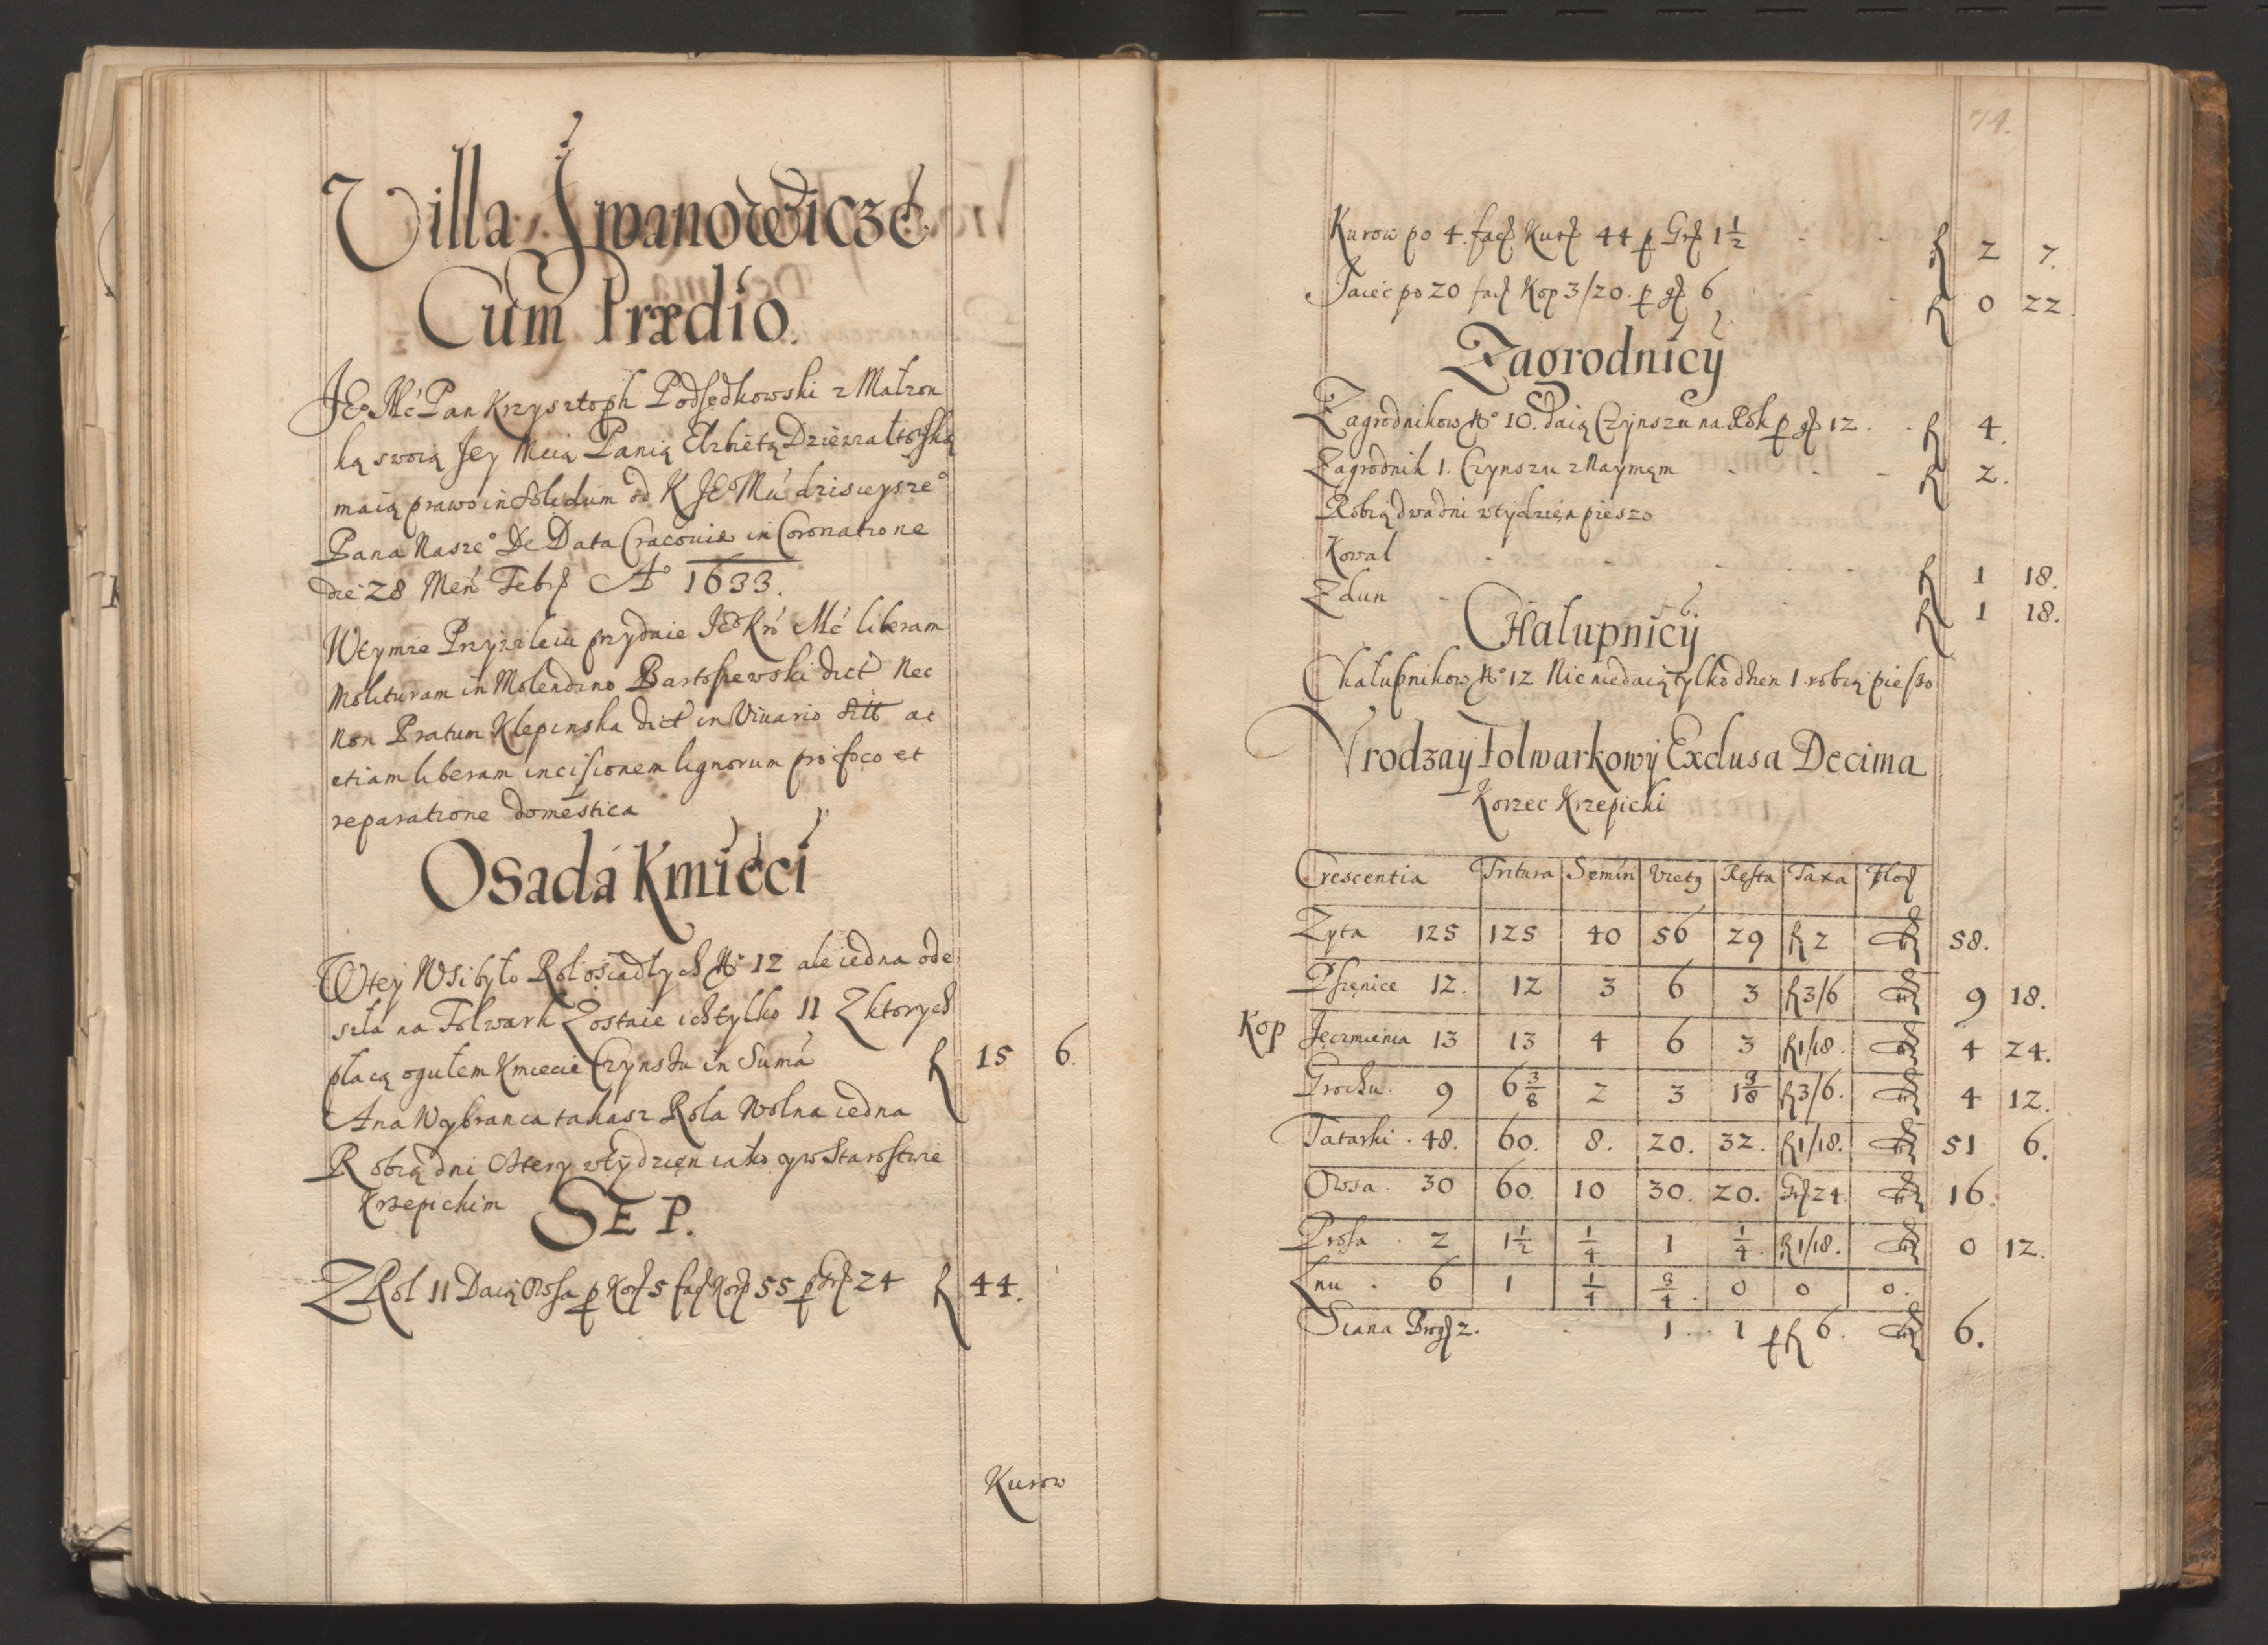 Villa Jwanowicze
Cum Prædio.
JE° Mć Pan Krzysztoph Podsędkowski z Małzon
ką swoią Jey Mcią Panią Elzbietą Dzierzałtowską
maią prawo in Solidum od K JE° Mći dzisieysze°
Pana Nasze° De Data Cracoviæ in Coronatione
die 28 Men Febr A° 1633.
W tymze Przywileiu przydaie JE° Kró Mć liberam
Molituram in Molendino Bartoszewski dict Nec
Non Pratum Klepinska dict in Vivario Sitt ac
etiam liberam incisionem lignorum pro foco et
reparatione domestica
Osadá Kmieci
W tey Wsi było Rol ośiadłych N° 12 ale iedna ode
szła na Folwark Zostaie ich tylko 11 Z ktorych
płacą ogułem Kmiecie Czynszu in Suma f 15 6.
A na Wybranca takasz Rola Wolna iedna
Robią dni cztery w tydzien iako y w Starostwie
Krzepickim
SEP.
Z Rol 11 Daią Owsa p Kor 5 fac Kor 55 p Gr 24 f 44.
Kurow
74.
Kurow po 4. fac Kur 44 p Gr 1 1/2 f 2 7.
Jaiec po 20 fac Kop 3/20. p gr 6 f 0 22
Zagrodnicÿ
Zagrodnikow N° 10. daią Czynszu na Rok p gr 12. f 4.
Zagrodnik 1. Czynszu z Naymem f 2.
Robią dwa dni w tydzien pieszo
Kowal f 1 18.
Zdun f 1 18.
Chalupnicÿ
Chałupnikow N° 12 Nic nie daią tylko dzien 1 robią pieszo
Vrodzaÿ Folwarkowÿ Exclusa Decima
Korzec Krzepicki
Crescentia Tritura Semin Victg Resta Taxa Flor
Zyta 125 125 40 56 29 f 2 58.
Pszenice 12. 12 3 6 3 f 3/6 9 18.
Kop Jęczmienia 13 13 4 6 3 f 1/18. 4 24.
Grochu. 9 6 3/8 2 3 1 3/8 f 3/6. 4 12.
Tatarki. 48. 60. 8. 20. 32. f 1/18. 51 6.
Owsa. 30 60. 10 30. 20. Gr 24. 16.
Prosa. 2 1 1/2 1/4 1 1/4. f 1/18. 0 12.
Lnu. 6 1 1/4 3/4. 0 0 0.
Siana Brog 2. 1. 1 p f 6. 6.